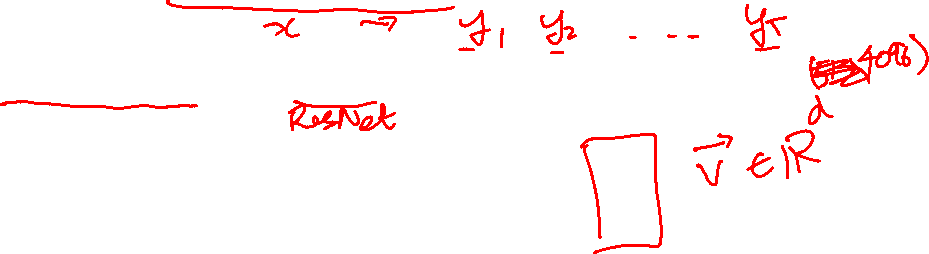 x → y₁ y₂ . - -- y_T
ResNet
v⃗ ∈ ℝᵈ 4096)